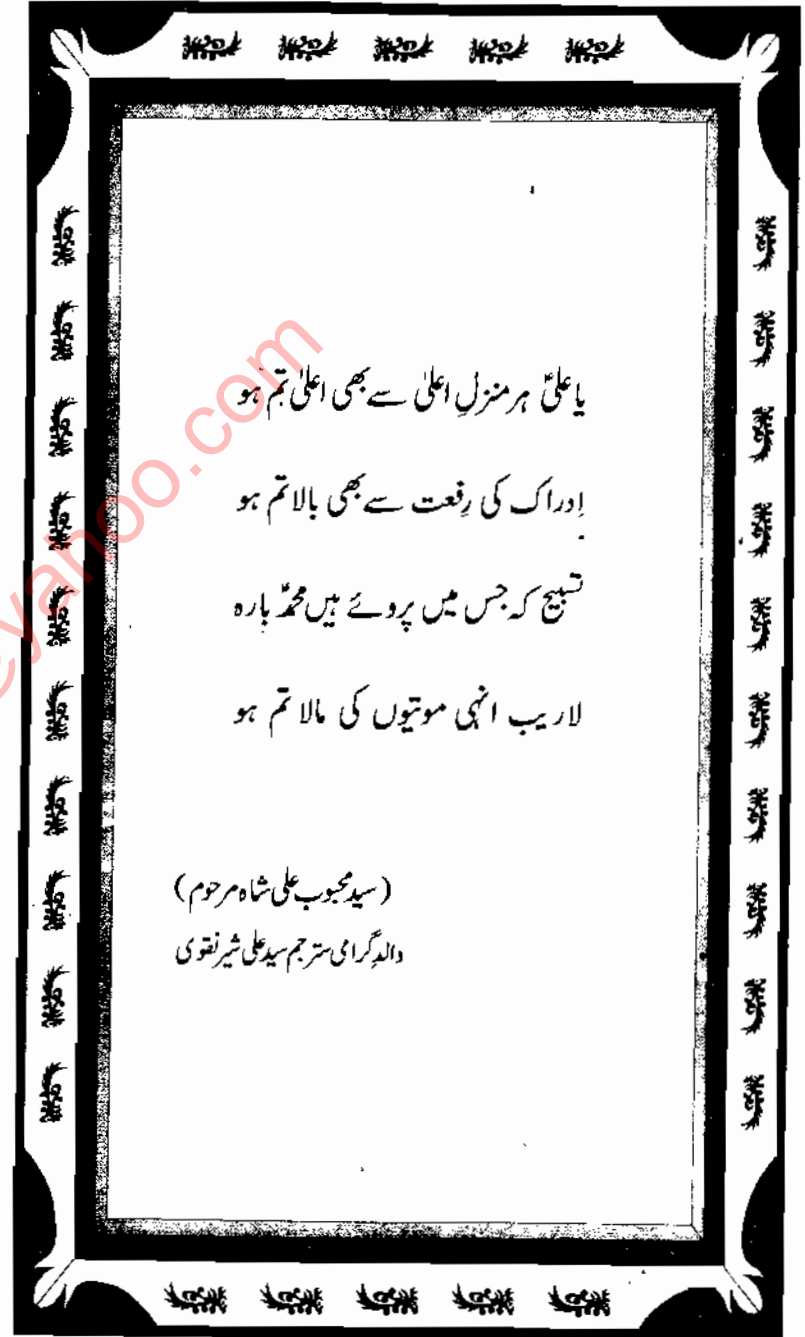 یا علیؑ ہر منزلِ اعلیٰ سے بھی اعلیٰ تم ہو
اِدراک کی رِفعت سے بھی بالا تم ہو
تسبیح کہ جس میں پروئے ہیں محمدؐ بارہ
لاریب انہی موتیوں کی مالا تم ہو
(سید محبوب علی شاہ مرحوم)
والدِ گرامی مترجم سید علی شیر نقوی
eyahoo.com